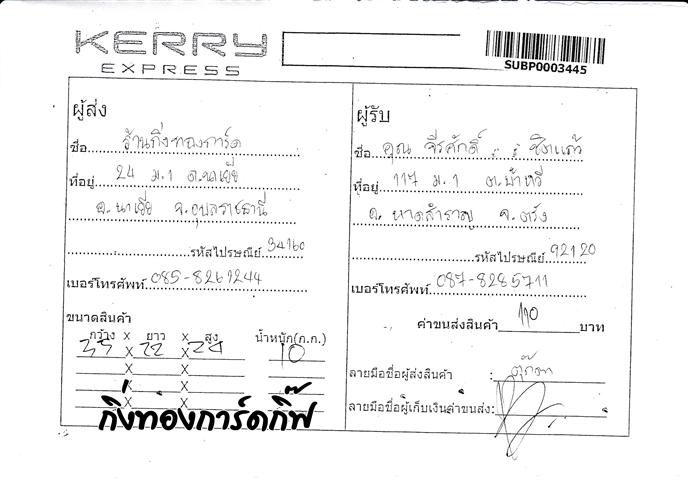 KERRY
EXPRESS
SUBP0003445
ผู้ส่ง
ชื่อ ร้านกิ่งทองการ์ด
ที่อยู่ 24 ม.1 ต.นาเยีย
อ.นาเยีย จ.อุบลราชธานี
รหัสไปรษณีย์ 34160
เบอร์โทรศัพท์ 085-8269244
ขนาดสินค้า
กว้าง X ยาว X สูง น้ำหนัก(ก.ก.)
35 X 22 X 24 10
X X
X X
X X
กิ่งทองการ์ดกิ๊ฟ
ผู้รับ
ชื่อ คุณ จีรศักดิ์
ที่อยู่ 117 ม.1 ต.บ้าหวี
อ.หาดสำราญ จ.ตรัง
รหัสไปรษณีย์ 92120
เบอร์โทรศัพท์ 087-8285711
ค่าขนส่งสินค้า 110 บาท
ลายมือชื่อผู้ส่งสินค้า : ตุ๊กตา
ลายมือชื่อผู้เก็บเงินค่าขนส่ง: